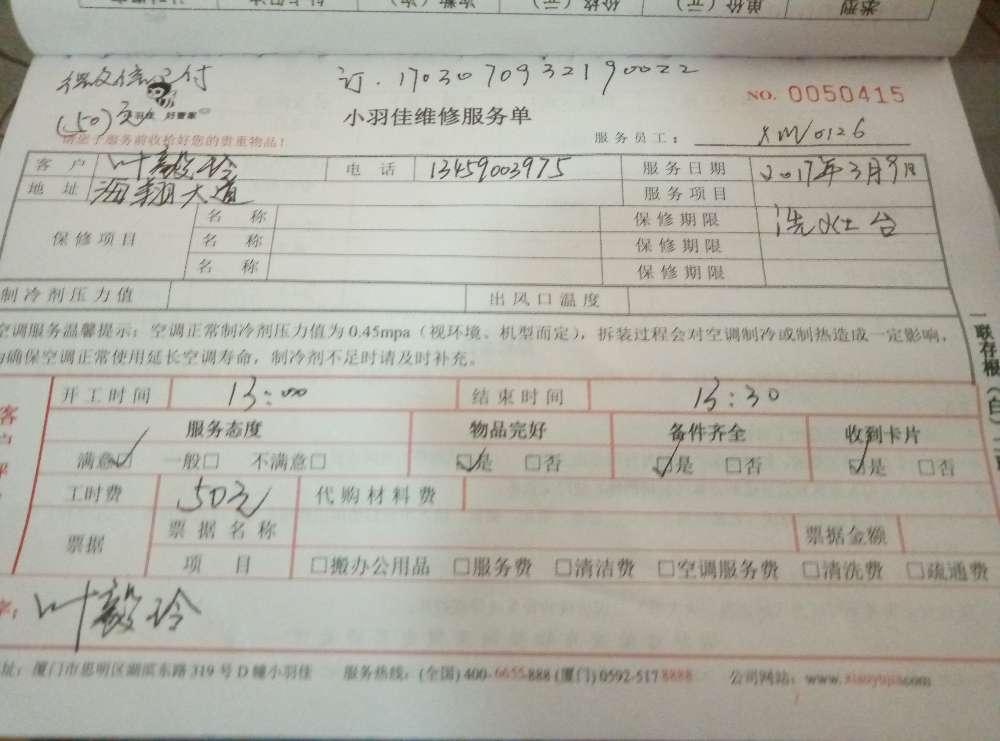 订.1703070932190022
微信支付
(50)元
羽佳 好管家
NO. 0050415
小羽佳维修服务单
请您于服务前收拾好您的贵重物品!
服务员工: XM0126
客户 叶毅玲 电话 13459003975 服务日期 2017年3月9日
地址 海翔大道 服务项目
保修项目 名称 保修期限 洗灶台
名称 保修期限
名称 保修期限
制冷剂压力值 出风口温度
空调服务温馨提示: 空调正常制冷剂压力值为0.45mpa(视环境、机型而定), 拆装过程会对空调制冷或制热造成一定影响,
为确保空调正常使用延长空调寿命, 制冷剂不足时请及时补充。
一联存根(白)
客户
开工时间 13:00 结束时间 13:30
服务态度 物品完好 备件齐全 收到卡片
满意☑ 一般□ 不满意□ ☑是 □否 ☑是 □否 ☑是 □否
工时费 50元 代购材料费
票据 票据名称 票据金额
项目 □搬办公用品 □服务费 □清洁费 □空调服务费 □清洗费 □疏通费
字: 叶毅玲
址: 厦门市思明区湖滨东路319号D幢小羽佳 服务热线: (全国)400-6655-888 (厦门)0592-5178888 公司网站: www.xiaoyujia.com